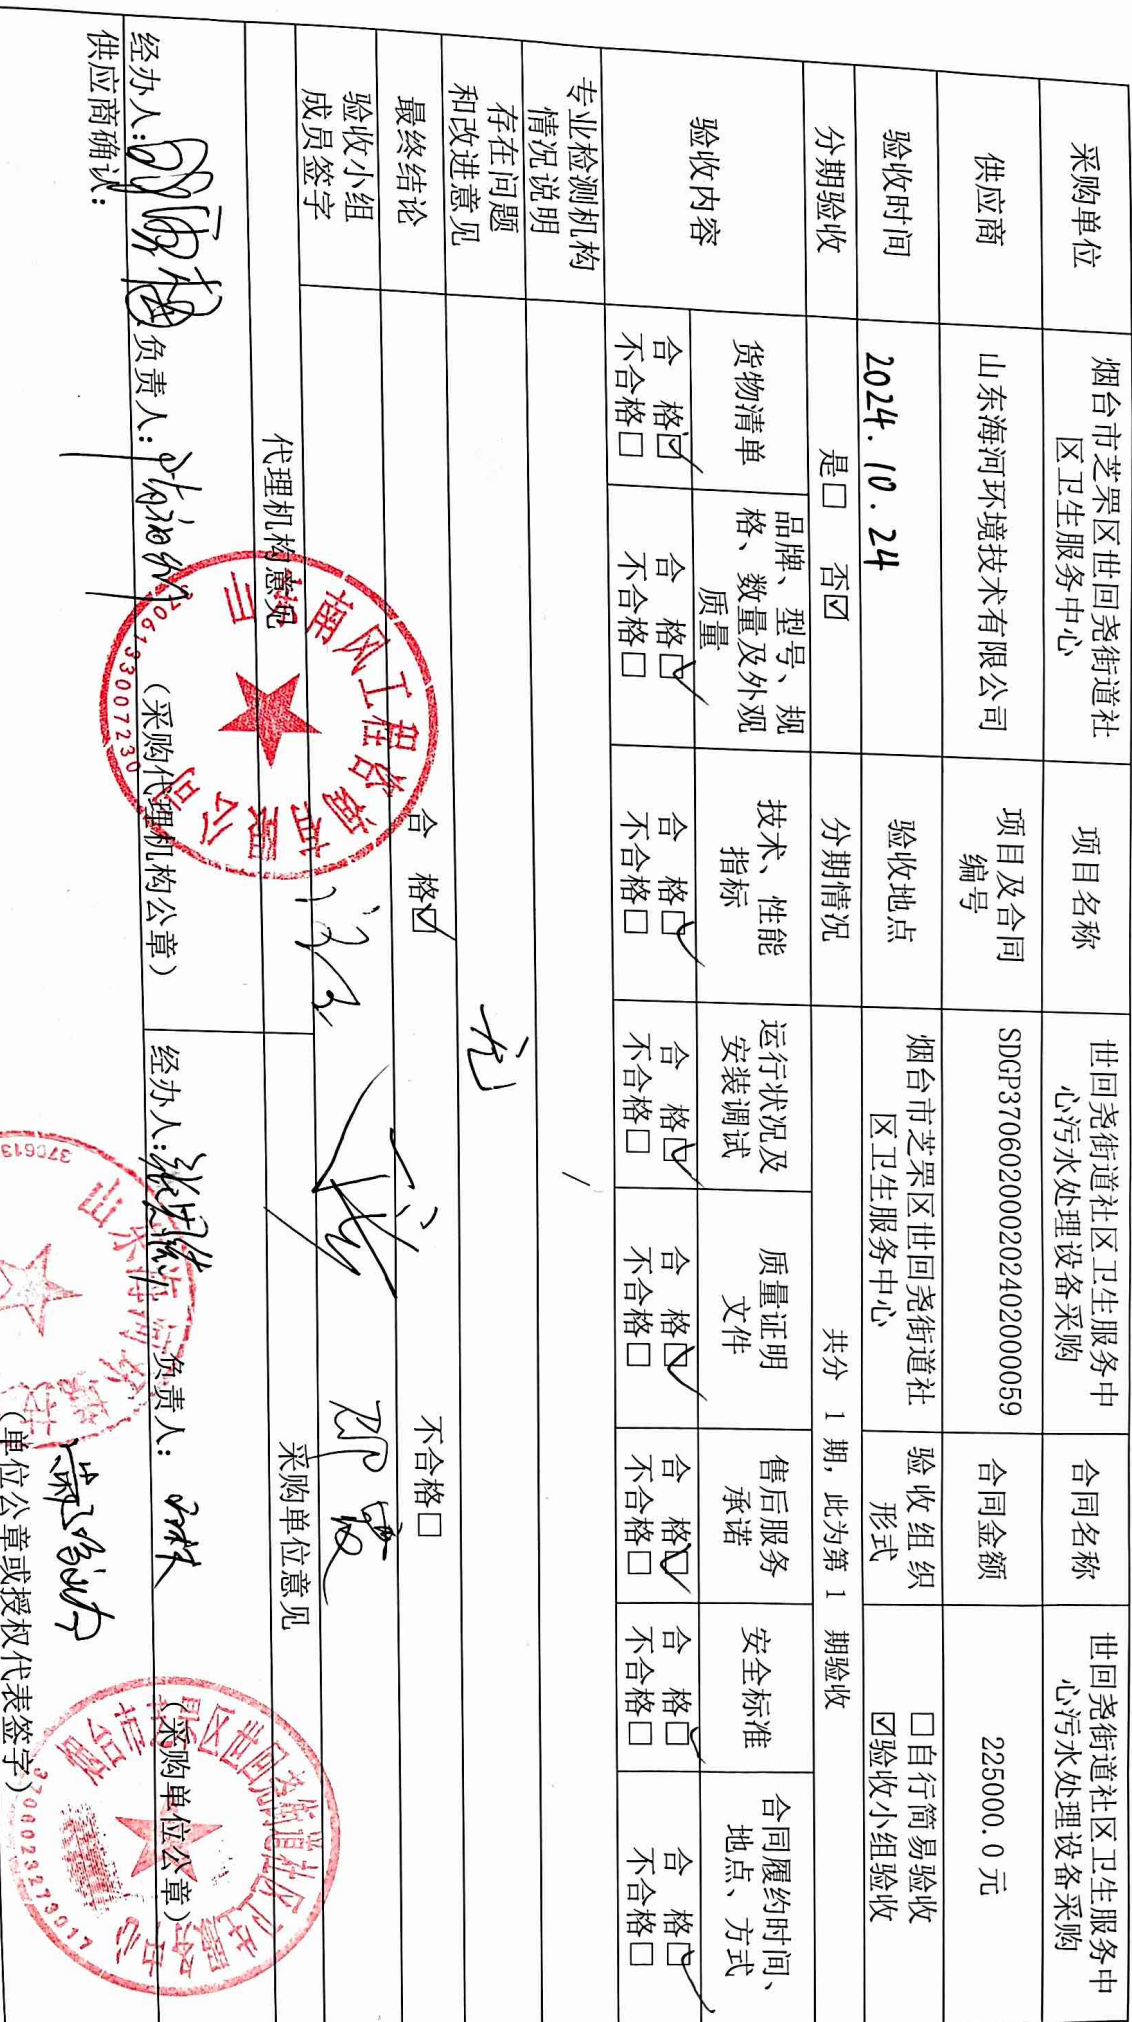 采购单位
烟台市芝罘区世回尧街道社
区卫生服务中心
项目名称
世回尧街道社区卫生服务中
心污水处理设备采购
合同名称
世回尧街道社区卫生服务中
心污水处理设备采购
供应商
山东海河环境技术有限公司
项目及合同
编号
SDGP370602000202402000059
合同金额
225000.0 元
验收时间
2024.10.24
验收地点
烟台市芝罘区世回尧街道社
区卫生服务中心
验收组织
形式
□自行简易验收
☑验收小组验收
分期验收
是□ 否☑
分期情况
共分 1 期，此为第 1 期验收
验收内容
货物清单
品牌、型号、规
格、数量及外观
质量
技术、性能
指标
运行状况及
安装调试
质量证明
文件
售后服务
承诺
安全标准
合同履约时间、
地点、方式
合 格☑
不合格□
合 格☑
不合格□
合 格☑
不合格□
合 格☑
不合格□
合 格☑
不合格□
合 格☑
不合格□
合 格☑
不合格□
合 格☑
不合格□
专业检测机构
情况说明
/
存在问题
和改进意见
无
最终结论
合 格☑
不合格□
验收小组
成员签字
代理机构意见
采购单位意见
经办人：
负责人：
（采购代理机构公章）
经办人：
负责人：
（采购单位公章）
供应商确认：
（单位公章或授权代表签字）
南风工程咨询有限公司
3706133007230
山东海河环境技
370613
烟台市芝罘区世回尧街道社区卫生服务中心
3706023273017